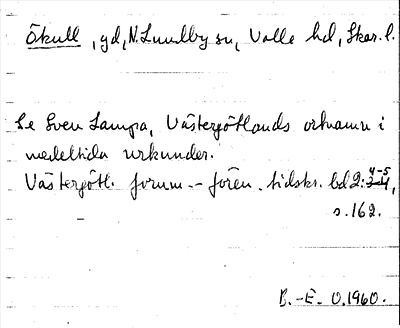 Ökull, gd, N Lundby sn, Valle hd, Skar. l.
Se Sven Lampa, Västergötlands ortnamn i
medeltida urkunder.
Västergötl. fornm.-fören. tidskr. bd 2: 4-5,
s. 162.
B.-E. O. 1960.